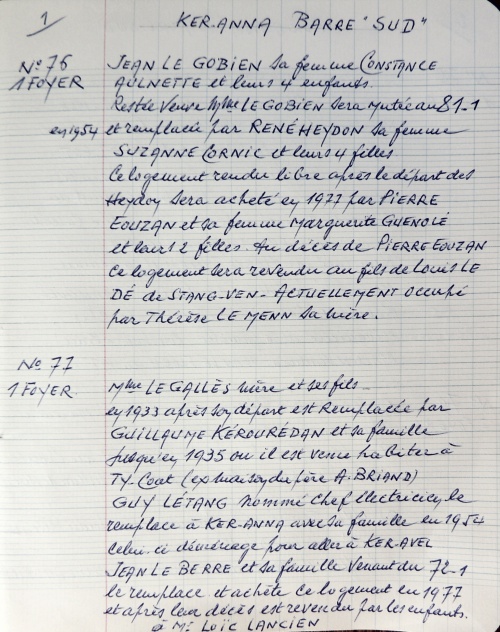 1
KER-ANNA BARRE "SUD"
N° 76 JEAN LE GOBIEN sa femme CONSTANCE
1 FOYER AULNETTE et leurs 4 enfants.
Restée Veuve Mme LE GOBIEN sera mutée au 81-1
en 1954 et remplacée par RENÉ HEYDON sa femme
SUZANNE CORNIC et leurs 4 filles
Ce logement rendu libre après le départ des
Heydon sera acheté en 1977 par PIERRE
EOUZAN et sa femme Marguerite GUENOLÉ
et leurs 2 filles. Au décès de PIERRE EOUZAN
ce logement sera revendu au fils de Louis LE
DÉ de STANG-VEN - ACTUELLEMENT occupé
par Thérèse LE MENN sa mère.
N° 77
1 FOYER Mme LE GALLÈS mère et ses fils
en 1933 après son départ est Remplacée par
GUILLAUME KÉROURÉDAN et sa famille
jusqu'en 1935 ou il est venu habiter à
TY-Coat (ex maison du père A. BRIAND)
GUY LÉTANG nommé Chef Electricien le
remplace à KER-ANNA avec sa famille en 1954
Celui-ci déménage pour aller à KER-AVEL
JEAN LE BERRE et sa famille Venant du 72-1
le remplace et achète ce logement en 1977
et après leur décès est revendu par les enfants.
à Mr LOÏC LANCIEN